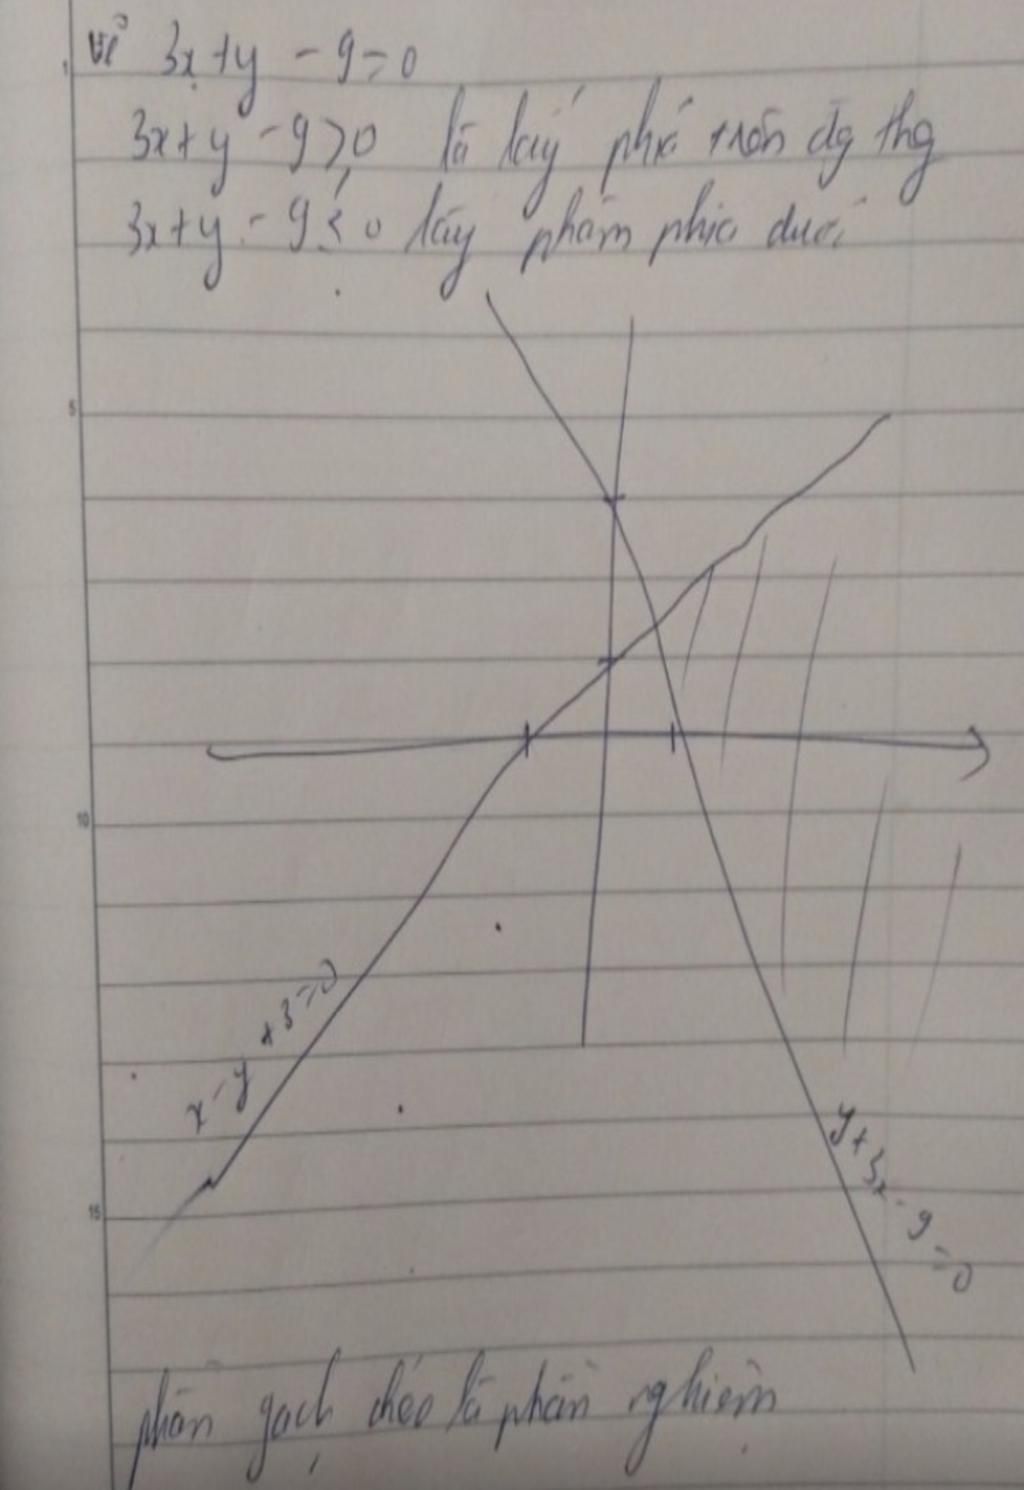 vẽ 3x+y - 9=0
3x+y - 9⩾0 là lấy phía trên đg thg
3x+y - 9⩽0 lấy phầm phía dưới
1
5
10
15
x-y+3=0
y+3x-9=0
phần gạch chéo là phần nghiệm